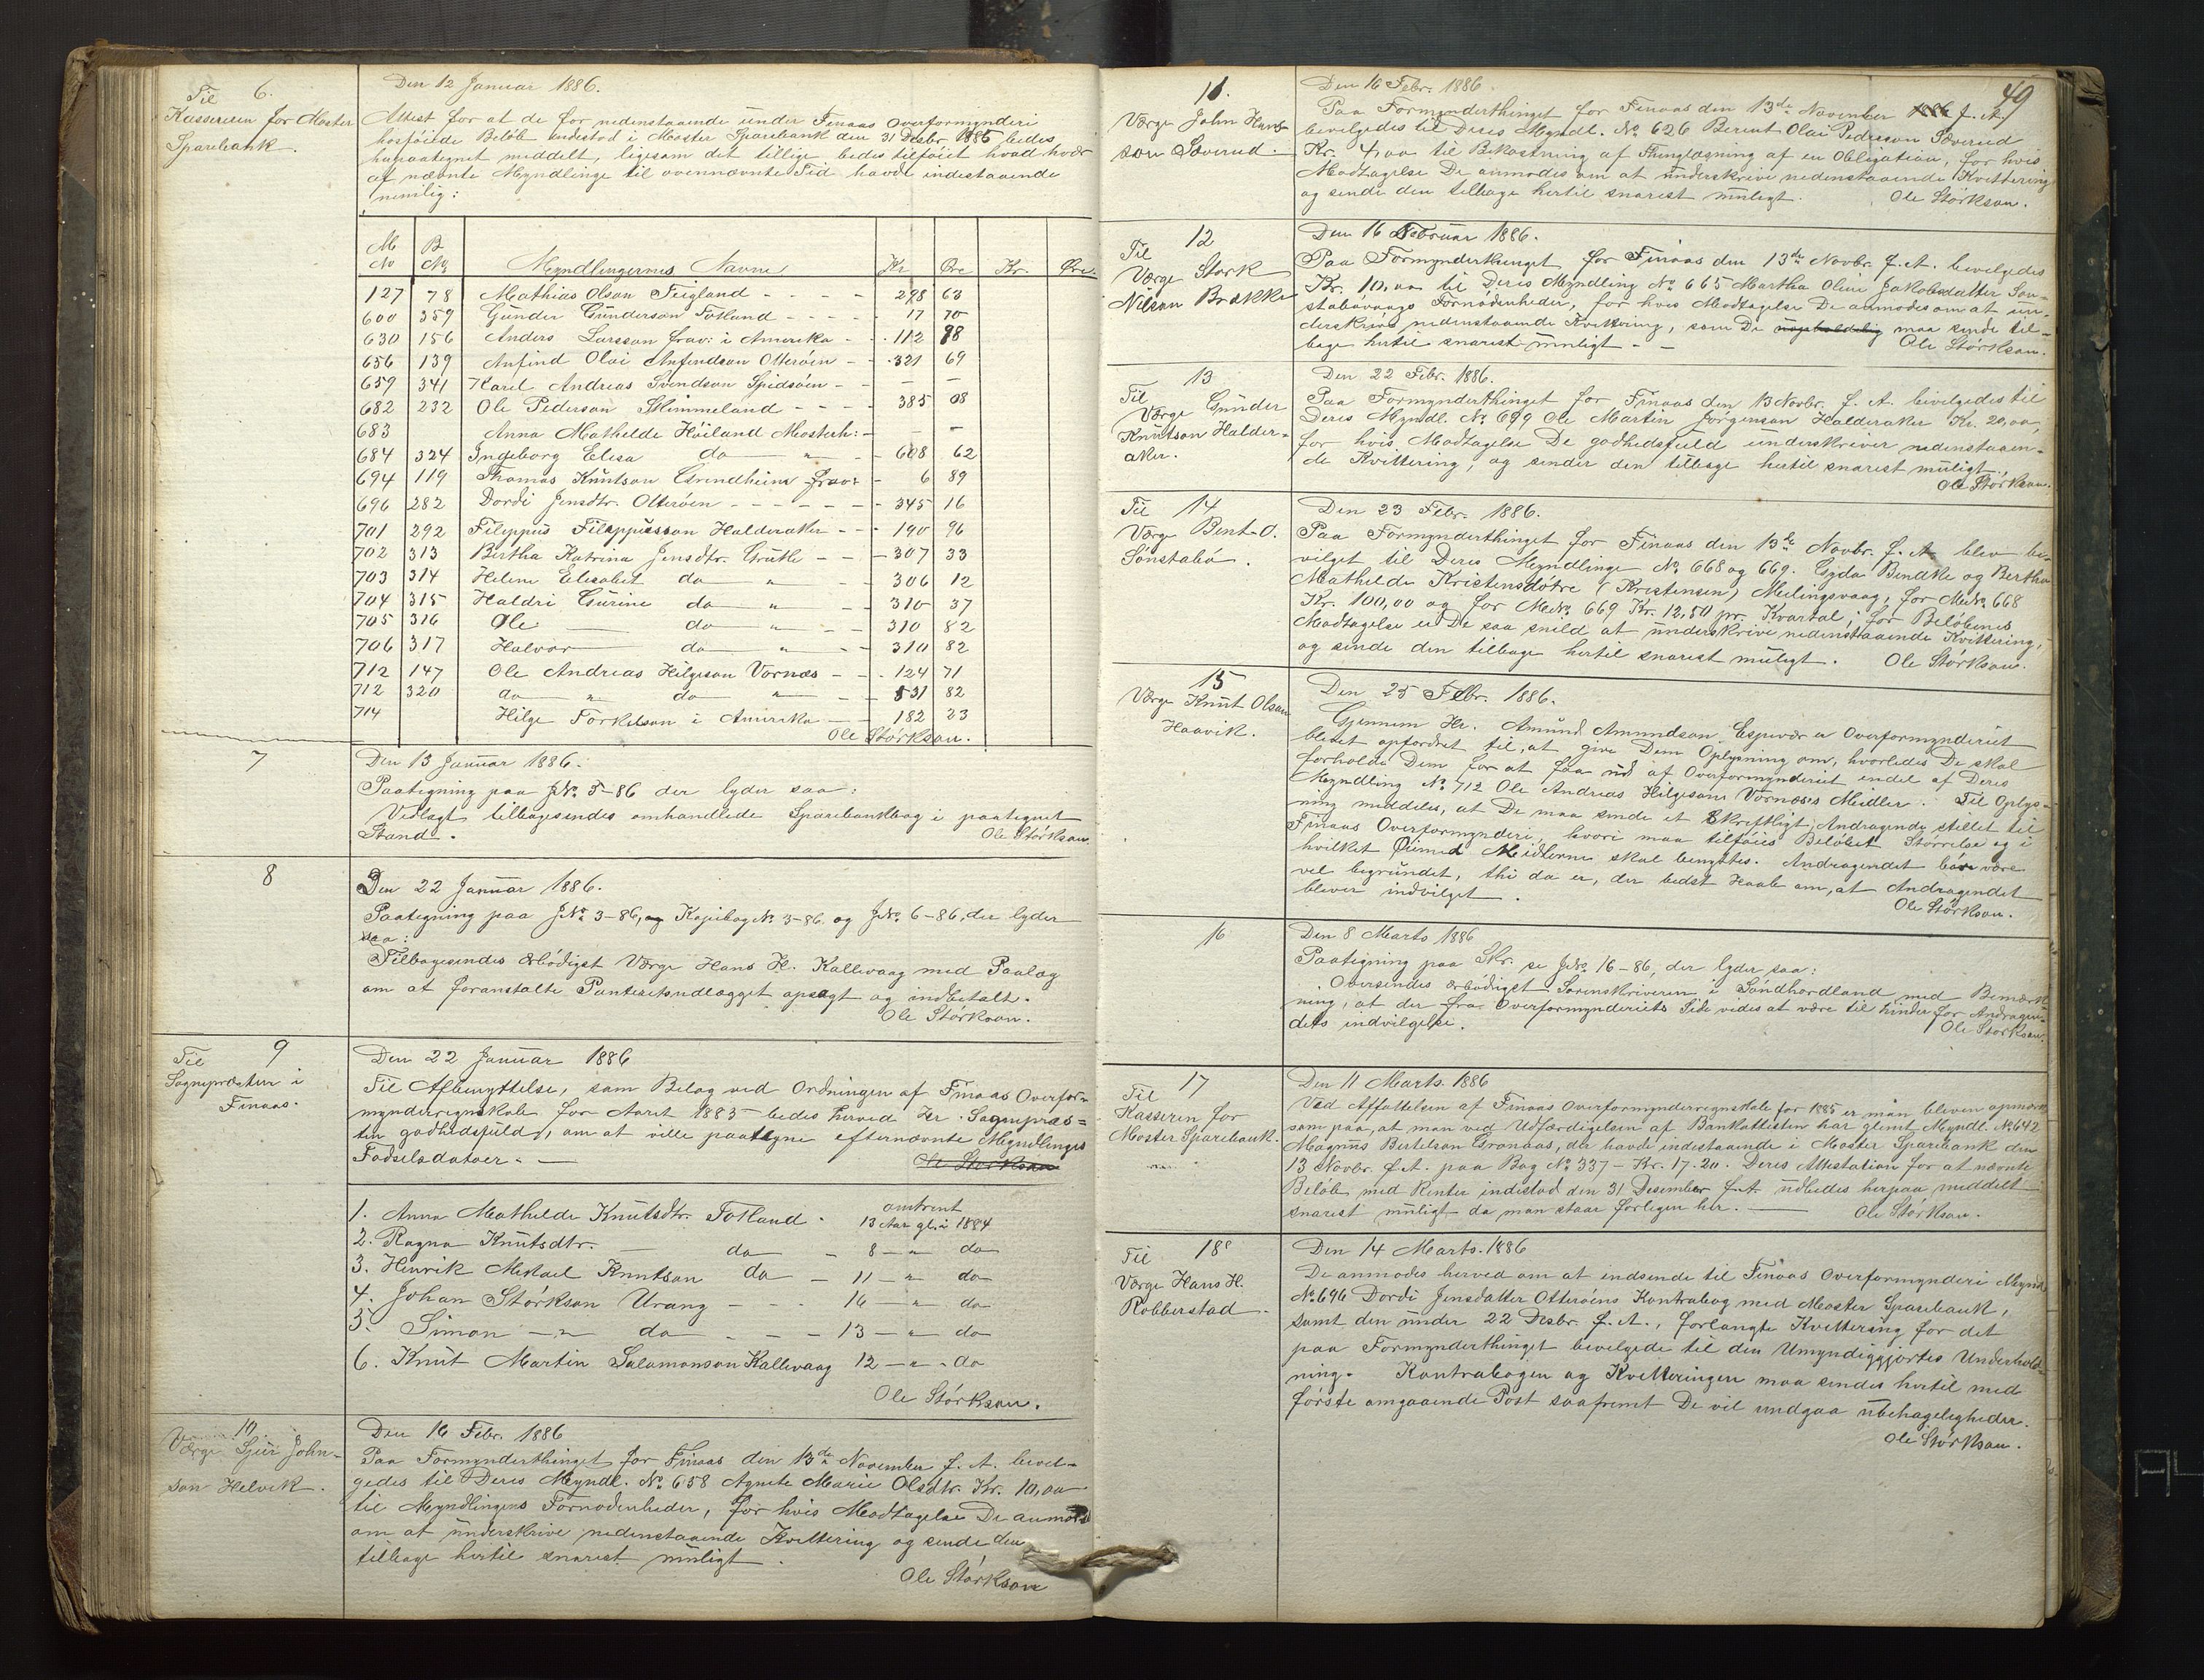 Til 6.
Kassereren for Moster
Sparebank.
Den 12 Januar 1886.
Attest for at de for nedenstaaende under Finaas Overformynderi
hosføiede Beløb indestod i Moster Sparebank den 31 Desbr 1885 bedes
herpaategnet meddelt, ligesom det tillige bedes tilføiet hvad hver
af nævnte Myndlinge til ovennævnte Tid havde indestaaende
nemlig:
M No B No Myndlingernes Navne Kr Øre Kr. Øre.
127 78 Mathias Olson Teigland - - - - 298 63
600 359 Gunder Gunderson Totland - - - - 17 70
630 156 Anders Larsson frav: i Amerika - - 112 88
656 139 Anfind Olai Anfindson Otterøen - - 321 69
659 341 Karel Andreas Svendson Spidsøen - - — —
682 232 Ole Pederson Skimmeland - - - - 385 08
683 Anna Mathilde Høiland Mosterh: - — —
684 324 Ingeborg Elisa do " - 608 62
694 119 Thomas Knutson Grindheim frav: - 6 89
696 282 Dordi Jensdtr. Otterøen - - - - - - 345 16
701 292 Filippus Filippusson Halderaker - - - 190 96
702 313 Bertha Katrina Jensdtr. Grutle - - - 307 33
703 314 Helene Elisabet do " - - 306 12
704 315 Haldri Gurine do " - - 310 37
705 316 Ole — do " - - 310 82
706 317 Halvor — do " - - 310 82
712 147 Ole Andreas Helgeson Vornæs - - - 124 71
712 320 do " do " - - 531 82
714 Helge Torkelson i Amerika - - 182 23
Ole Størkson.
7
Den 13 Januar 1886.
Paategning paa J№ 5-86 der lyder saa:
Vedlagt tilbagesendes omhandlede Sparebankbog i paategnet
Stand. Ole Størkson
8
Den 22 Januar 1886.
Paategning paa J№ 3-86, og Kopibog № 3-86 og J№ 6-86, der lyder
saa:
Tilbagesendes ærbødigst Værge Hans H. Kallevaag med Paalæg
om at foranstalte Panteretsudlægget opsagt og indbetalt.
Ole Størkson.
Til 9
Sognepræsten i
Finaas.
Den 22 Januar 1886
Til Afbenyttelse, som Bilag ved Ordningen af Finaas Overfor-
mynderregnskab for Aaret 1885 bedes herved Hr. Sognepræs-
ten godhedsfuld, om at ville paategne efternævnte Myndlinges
Fødselsdatoer. — Ole Størkson
1. Anna Mathilde Knutsdtr. Totland - omtrent 13 Aar gl. i 1884
2. Ragna Knutsdtr. — do - 8 - " do
3. Henrik Mikael Knutson do - 11 - " do
4. Johan Størkson Urang - - - 16 - " do
5. Simon - " do - - - 13 - " do
6. Knut Martin Salamonson Kallevaag 12 - " - do
Ole Størkson.
10
Værge Sjur John-
son Helvik.
Den 16 Febr. 1886
Paa Formynderthinget for Finaas den 13de November f. A. bevil-
gedes til Deres Myndl. № 658 Agnete Marie Olsdtr. Kr. 10,00
til Myndlingens Fornødenheder, for hvis Modtagelse De anmodes
om at underskrive nedenstaaende Kvittering og sende den
tilbage hertil snarest muligt.
Ole Størkson
49
11.
Værge John Hans-
son Søverud.
Den 16 Febr. 1886
Paa Formynderthinget for Finaas den 13de November 1886 f. A.
bevilgedes til Deres Myndl. № 626 Berent Olai Pederson Søverud
Kr. 4,00 til Bekostning af Thinglæsning af en Obligation, for hvis
Modtagelse De anmodes om at underskrive nedenstaaende Kvittering
og sende den tilbage hertil snarest muligt. Ole Størkson.
12
Til
Værge Størk
Nilsen Brække
Den 16 Februar 1886.
Paa Formynderthinget for Finaas den 13de Novbr. f. A. bevilgedes
Kr. 10,00 til Deres Myndling № 665 Martha Oline Jakobsdatter Søn-
stabøvaags Fornødenheder, for hvis Modtagelse De anmodes om at un-
derskrive nedenstaaende Kvittering, som De maa sende til-
bage hertil snarest muligt - - Ole Størkson.
13
Til
Værge Gunder
Knutson Halder-
aker.
Den 22 Febr. 1886.
Paa Formynderthinget for Finaas den 13 Novbr. f. A. bevilgedes til
Deres Myndl. № 699 Ole Martin Jørgenson Halderaker Kr. 20,00,
for hvis Modtagelse De godhedsfuld underskriver nedenstaaen-
de Kvittering, og sender den tilbage hertil snarest muligt.
Ole Størkson.
Til 14
Værge Bent O.
Sønstabø.
Den 23 Febr. 1886.
Paa Formynderthinget for Finaas den 13de Novbr. f. A. blev be-
vilget til Deres Myndlinge № 668 og 669. Gyda Bendke og Bertha
Mathilde Kristensdøtre (Kristensen) Meilingsvaag, for M№ 668
Kr. 100,00 og for M№ 669 Kr. 12,50 pr. Kvartal; for Beløbenes
Modtagelse er De saa snild at underskrive nedenstaaende Kvittering,
og sende den tilbage hertil snarest muligt. Ole Størkson.
15
Værge Knut Olson
Haavik.
Den 25 Febr. 1886.
Gjennem Hr. Amund Amundson Espevær er Overformynderiet
blevet opfordret til, at give Dem Oplysning om, hvorledes De skal
forholde Dem for at faa ud af Overformynderiet endel af Deres
Myndling № 712 Ole Andreas Helgesons Vornæses Midler. Til Oplys-
ning meddeles, at De maa sende et Skriftligt Andragende stillet til
Finaas Overformynderi, hvori maa tilføies Beløbets Størrelse og i
hvilket Øiemed Midlerne skal benyttes. Andragendet bør være
vel begrundet, thi da er, der bedst Haab om, at Andragendet
bliver indvilget. Ole Størkson.
16
Den 8 Marts 1886
Paategning paa Skr. se J№ 16-86, der lyder saa:
Oversendes ærbødigst Sorenskriveren i Søndhordland med Bemærk-
ning, at der fra Overformynderiets Side vides at være til hinder for Andragen-
dets indvilgelse. Ole Størkson.
17
Til
Kasseren for
Moster Sparebank.
Den 11 Marts. 1886
Ved Affattelsen af Finaas Overformynderregnskab for 1885 er man bleven opmærk
som paa, at man ved Udfærdigelsen af Bankattesten har glemt Myndl. № 642
Magnus Bertelson Grønaas, der havde indestaaende i Moster Sparebank den
13 Novbr. f. A. paa Bog № 337 - Kr. 17.20. Deres Attestation for at nævnte
Beløb med Renter indestod den 31 Desember f. A. udbedes herpaa meddelt
snarest muligt da man staar forlegen her. — Ole Størkson.
Til 18
Værge Hans H.
Robberstad.
Den 14 Marts. 1886
De anmodes herved om at indsende til Finaas Overformynderi Mynd
№ 696 Dordi Jensdatter Otterøens Kontrabog med Moster Sparebank,
samt den under 22 Desbr. f. A., forlangte Kvittering for det
paa Formynderthinget bevilgede til den Umyndiggjortes Underhold-
ning. Kontrabogen og Kvitteringen maa sendes hertil med
første omgaaende Post saafremt De vil undgaa ubehageligheder.
Ole Størkson.